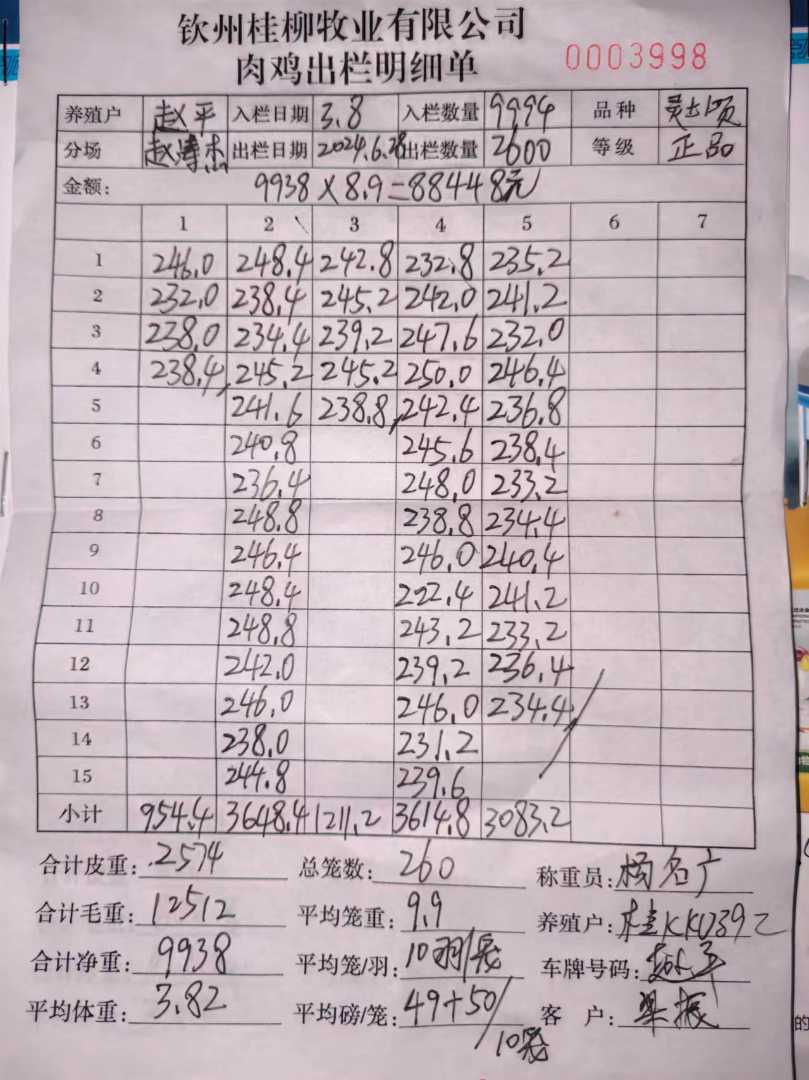 钦州桂柳牧业有限公司
肉鸡出栏明细单 0003998
养殖户 赵平 入栏日期 3.8 入栏数量 9994 品种
分场 赵涛杰 出栏日期 2024.6.28 出栏数量 2600 等级 正品
金额: 9938×8.9=88448元
1 2 3 4 5 6 7
1 246.0 248.4 242.8 232.8 235.2
2 232.0 238.4 245.2 242.0 241.2
3 238.0 234.4 239.2 247.6 232.0
4 238.4 245.2 245.2 250.0 246.4
5 241.6 238.8 242.4 236.8
6 240.8 245.6 238.4
7 236.4 248.0 233.2
8 248.8 238.8 234.4
9 246.4 246.0 240.4
10 248.4 222.4 241.2
11 248.8 243.2 233.2
12 242.0 239.2 236.4
13 246.0 246.0 234.4
14 238.0 231.2
15 244.8 239.6
小计 954.4 3648.4 1211.2 3614.8 3083.2
合计皮重: 2574 总笼数: 260 称重员: 杨名广
合计毛重: 12512 平均笼重: 9.9 养殖户: 桂KK0392
合计净重: 9938 平均笼/羽: 10羽 车牌号码:
平均体重: 3.82 平均磅/笼: 49+50/ 客 户:
10
的